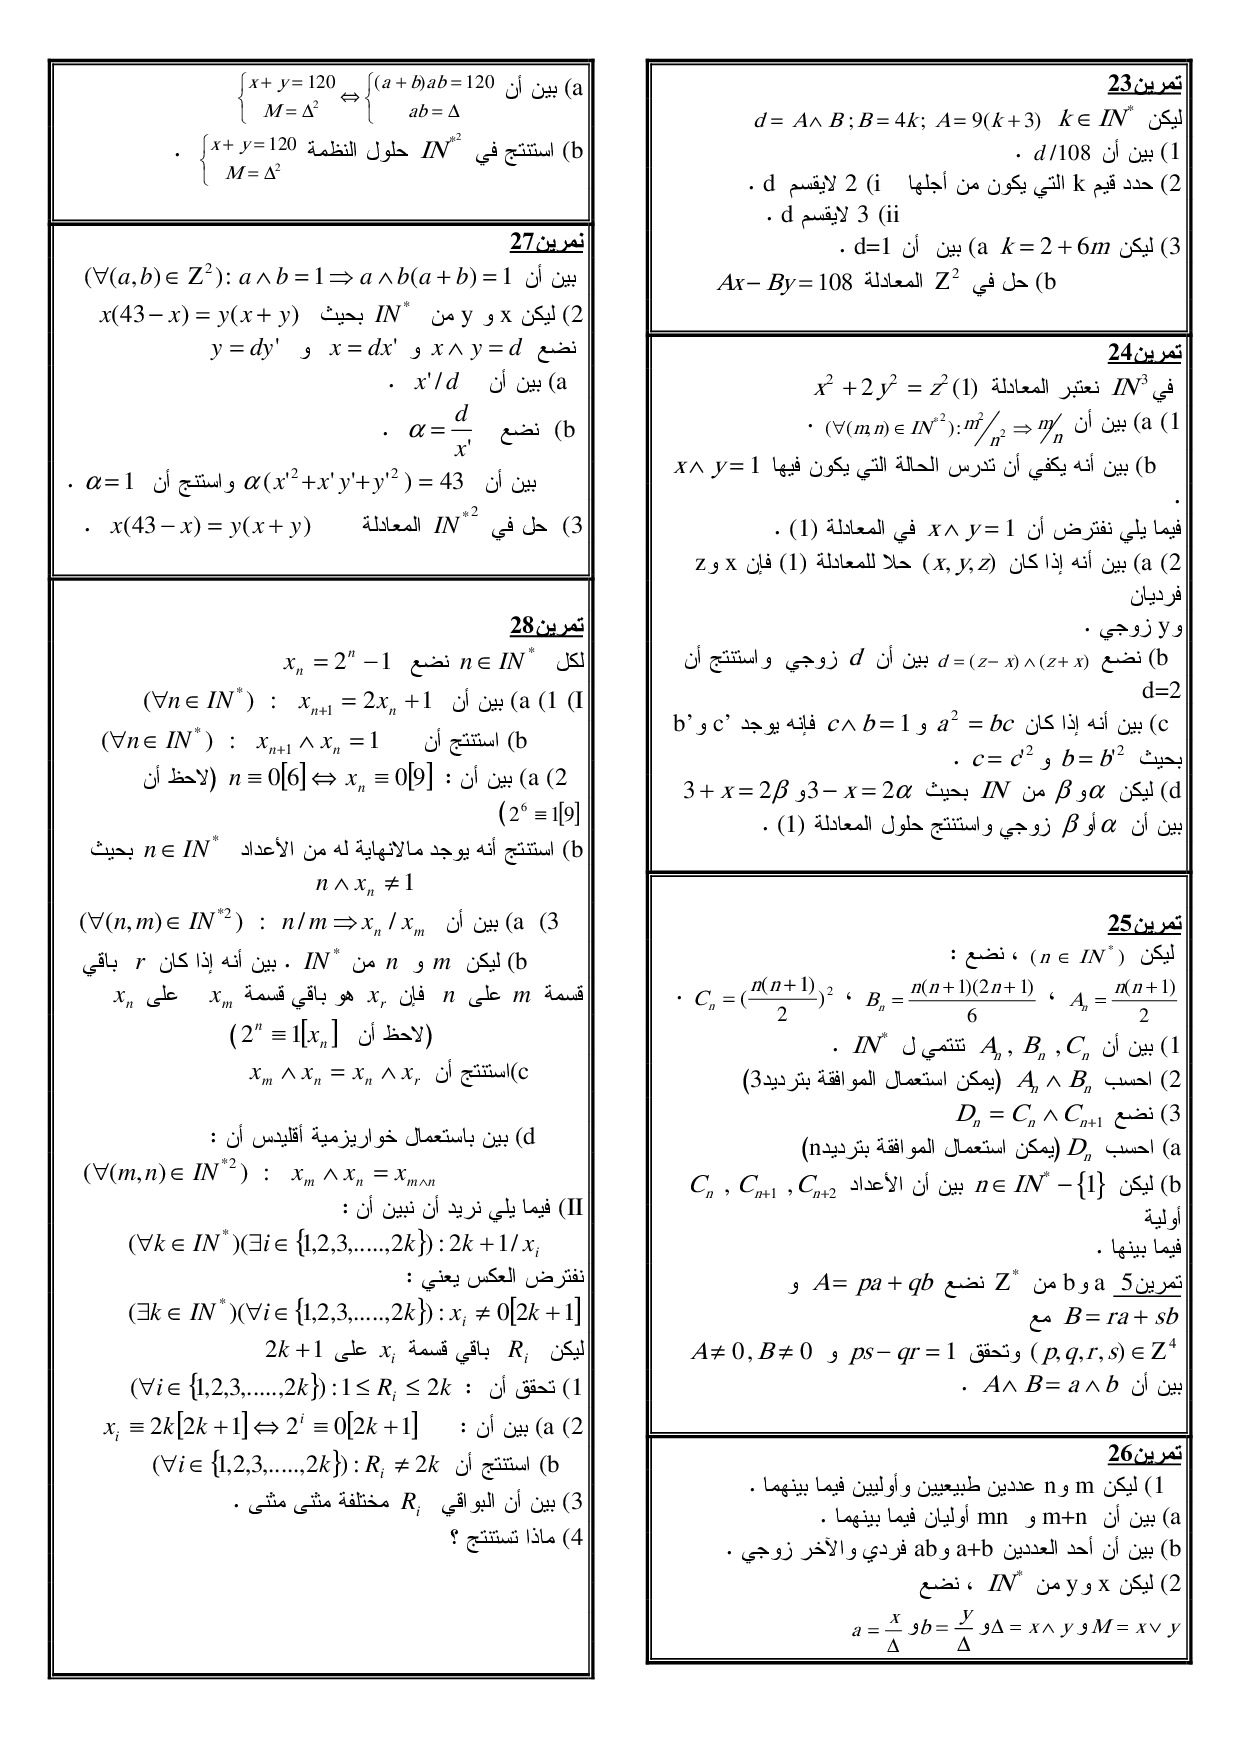 تمرين23
ليكن k ∈ IN* d = A∧ B ; B = 4k; A = 9(k + 3)
1) بين أن d /108 .
2) حدد قيم k التي يكون من أجلها i) 2 لايقسم d .
ii) 3 لايقسم d .
3) ليكن k = 2 + 6m a) بين أن d=1 .
b) حل في Z² المعادلة Ax − By = 108
تمرين24
في IN³ نعتبر المعادلة x² + 2y² = z² (1)
1) a) بين أن (∀(m,n) ∈ IN*²): m²/n² ⇒ m/n .
b) بين أنه يكفي أن تدرس الحالة التي يكون فيها x ∧ y = 1
.
فيما يلي نفترض أن x ∧ y = 1 في المعادلة (1) .
2) a) بين أنه إذا كان (x, y, z) حلا للمعادلة (1) فإن x و z
فرديان
و y زوجي .
b) نضع d = (z − x) ∧ (z + x) بين أن d زوجي واستنتج أن
d=2
c) بين أنه إذا كان a² = bc و c ∧ b = 1 فإنه يوجد c’ و b’
بحيث b = b'² و c = c'² .
d) ليكن α و β من IN بحيث 3 − x = 2α و 3 + x = 2β
بين أن α أو β زوجي واستنتج حلول المعادلة (1) .
تمرين25
ليكن (n ∈ IN*) ، نضع :
A_n = n(n+1)/2 ، B_n = n(n+1)(2n+1)/6 ، C_n = (n(n+1)/2)² .
1) بين أن A_n , B_n , C_n تنتمي ل IN* .
2) احسب A_n ∧ B_n (يمكن استعمال الموافقة بترديد3)
3) نضع D_n = C_n ∧ C_{n+1}
a) احسب D_n (يمكن استعمال الموافقة بترديدn)
b) ليكن n ∈ IN* − {1} بين أن الأعداد C_n , C_{n+1} , C_{n+2}
أولية
فيما بينها .
تمرين5 a و b من Z* نضع A = pa + qb و
B = ra + sb مع
(p, q, r, s) ∈ Z⁴ وتحقق ps − qr = 1 و A ≠ 0 , B ≠ 0
بين أن A∧ B = a ∧ b .
تمرين26
1) ليكن m و n عددين طبيعيين وأوليين فيما بينهما .
a) بين أن m+n و mn أوليان فيما بينهما .
b) بين أن أحد العددين a+b و ab فردي والآخر زوجي .
2) ليكن x و y من IN* ، نضع
M = x∨ y و Δ = x∧ y و b = y/Δ و a = x/Δ
a) بين أن {(a + b)ab = 120 ; ab = Δ ⇔ {x + y = 120 ; M = Δ²
b) استنتج في IN*² حلول النظمة {x + y = 120 ; M = Δ² .
نمرين27
بين أن (∀(a,b) ∈ Z²): a ∧ b = 1 ⇒ a ∧ b(a + b) = 1
2) ليكن x و y من IN* بحيث x(43 − x) = y(x + y)
نضع x ∧ y = d و x = dx' و y = dy'
a) بين أن x'/ d .
b) نضع α = d/x' .
بين أن α(x'²+x'y'+y'²) = 43 واستنتج أن α = 1 .
3) حل في IN*² المعادلة x(43 − x) = y(x + y) .
تمرين28
لكل n ∈ IN* نضع x_n = 2ⁿ − 1
I) 1) a) بين أن (∀n ∈ IN*) : x_{n+1} = 2x_n + 1
b) استنتج أن (∀n ∈ IN*) : x_{n+1} ∧ x_n = 1
2) a) بين أن : n ≡ 0[6] ⇔ x_n ≡ 0[9] (لاحظ أن
2⁶ ≡ 1[9])
b) استنتج أنه يوجد مالانهاية له من الأعداد n ∈ IN* بحيث
n ∧ x_n ≠ 1
3) a) بين أن (∀(n,m) ∈ IN*²) : n/m ⇒ x_n / x_m
b) ليكن m و n من IN* . بين أنه إذا كان r باقي
قسمة m على n فإن x_r هو باقي قسمة x_m على x_n
(لاحظ أن 2ⁿ ≡ 1[x_n])
c)استنتج أن x_m ∧ x_n = x_n ∧ x_r
d) بين باستعمال خواريزمية أقليدس أن :
(∀(m,n) ∈ IN*²) : x_m ∧ x_n = x_{m∧n}
II) فيما يلي نريد أن نبين أن :
(∀k ∈ IN*)(∃i ∈ {1,2,3,.....,2k}): 2k + 1/ x_i
نفترض العكس يعني :
(∃k ∈ IN*)(∀i ∈ {1,2,3,.....,2k}): x_i ≠ 0[2k + 1]
ليكن R_i باقي قسمة x_i على 2k + 1
1) تحقق أن : (∀i ∈ {1,2,3,.....,2k}): 1 ≤ R_i ≤ 2k
2) a) بين أن : x_i ≡ 2k[2k + 1] ⇔ 2ⁱ ≡ 0[2k + 1]
b) استنتج أن (∀i ∈ {1,2,3,.....,2k}): R_i ≠ 2k
3) بين أن البواقي R_i مختلفة مثنى مثنى .
4) ماذا تستنتج ؟